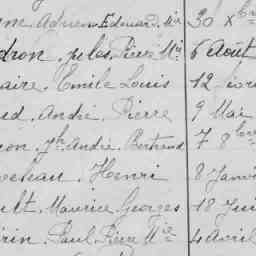 Adrien Edouard Mie 30 Xbre
dron, Jules Pierre Mie 6 Août
aire, Emile Louis 12
André, Pierre 9 Mai
on, Jh André Bertrand 7 8bre
Henri 8 Janv
ult, Maurice Georges 18 Jui
rin, Paul Pierre Mie 4 Avril